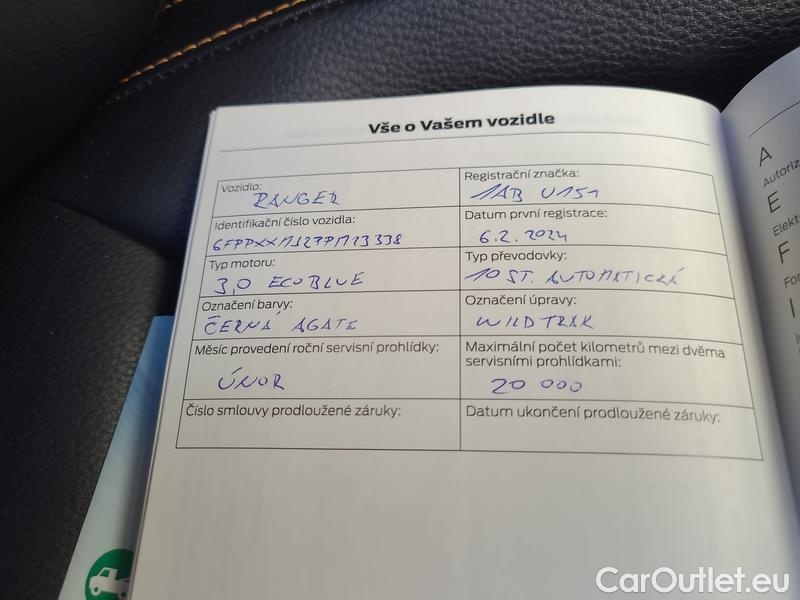 Vše o Vašem vozidle
Vozidlo:
RANGER
Registrační značka:
1AB U151
Identifikační číslo vozidla:
Datum první registrace:
6.2.2024
Typ motoru:
3,0 ECOBLUE
Typ převodovky:
10 ST. AUTOMATICKÁ
Označení barvy:
ČERNÁ AGATE
Označení úpravy:
WILDTRAK
Měsíc provedení roční servisní prohlídky:
ÚNOR
Maximální počet kilometrů mezi dvěma
servisními prohlídkami:
20 000
Číslo smlouvy prodloužené záruky:
Datum ukončení prodloužené záruky:
A
E
F
I
CarOutlet.eu